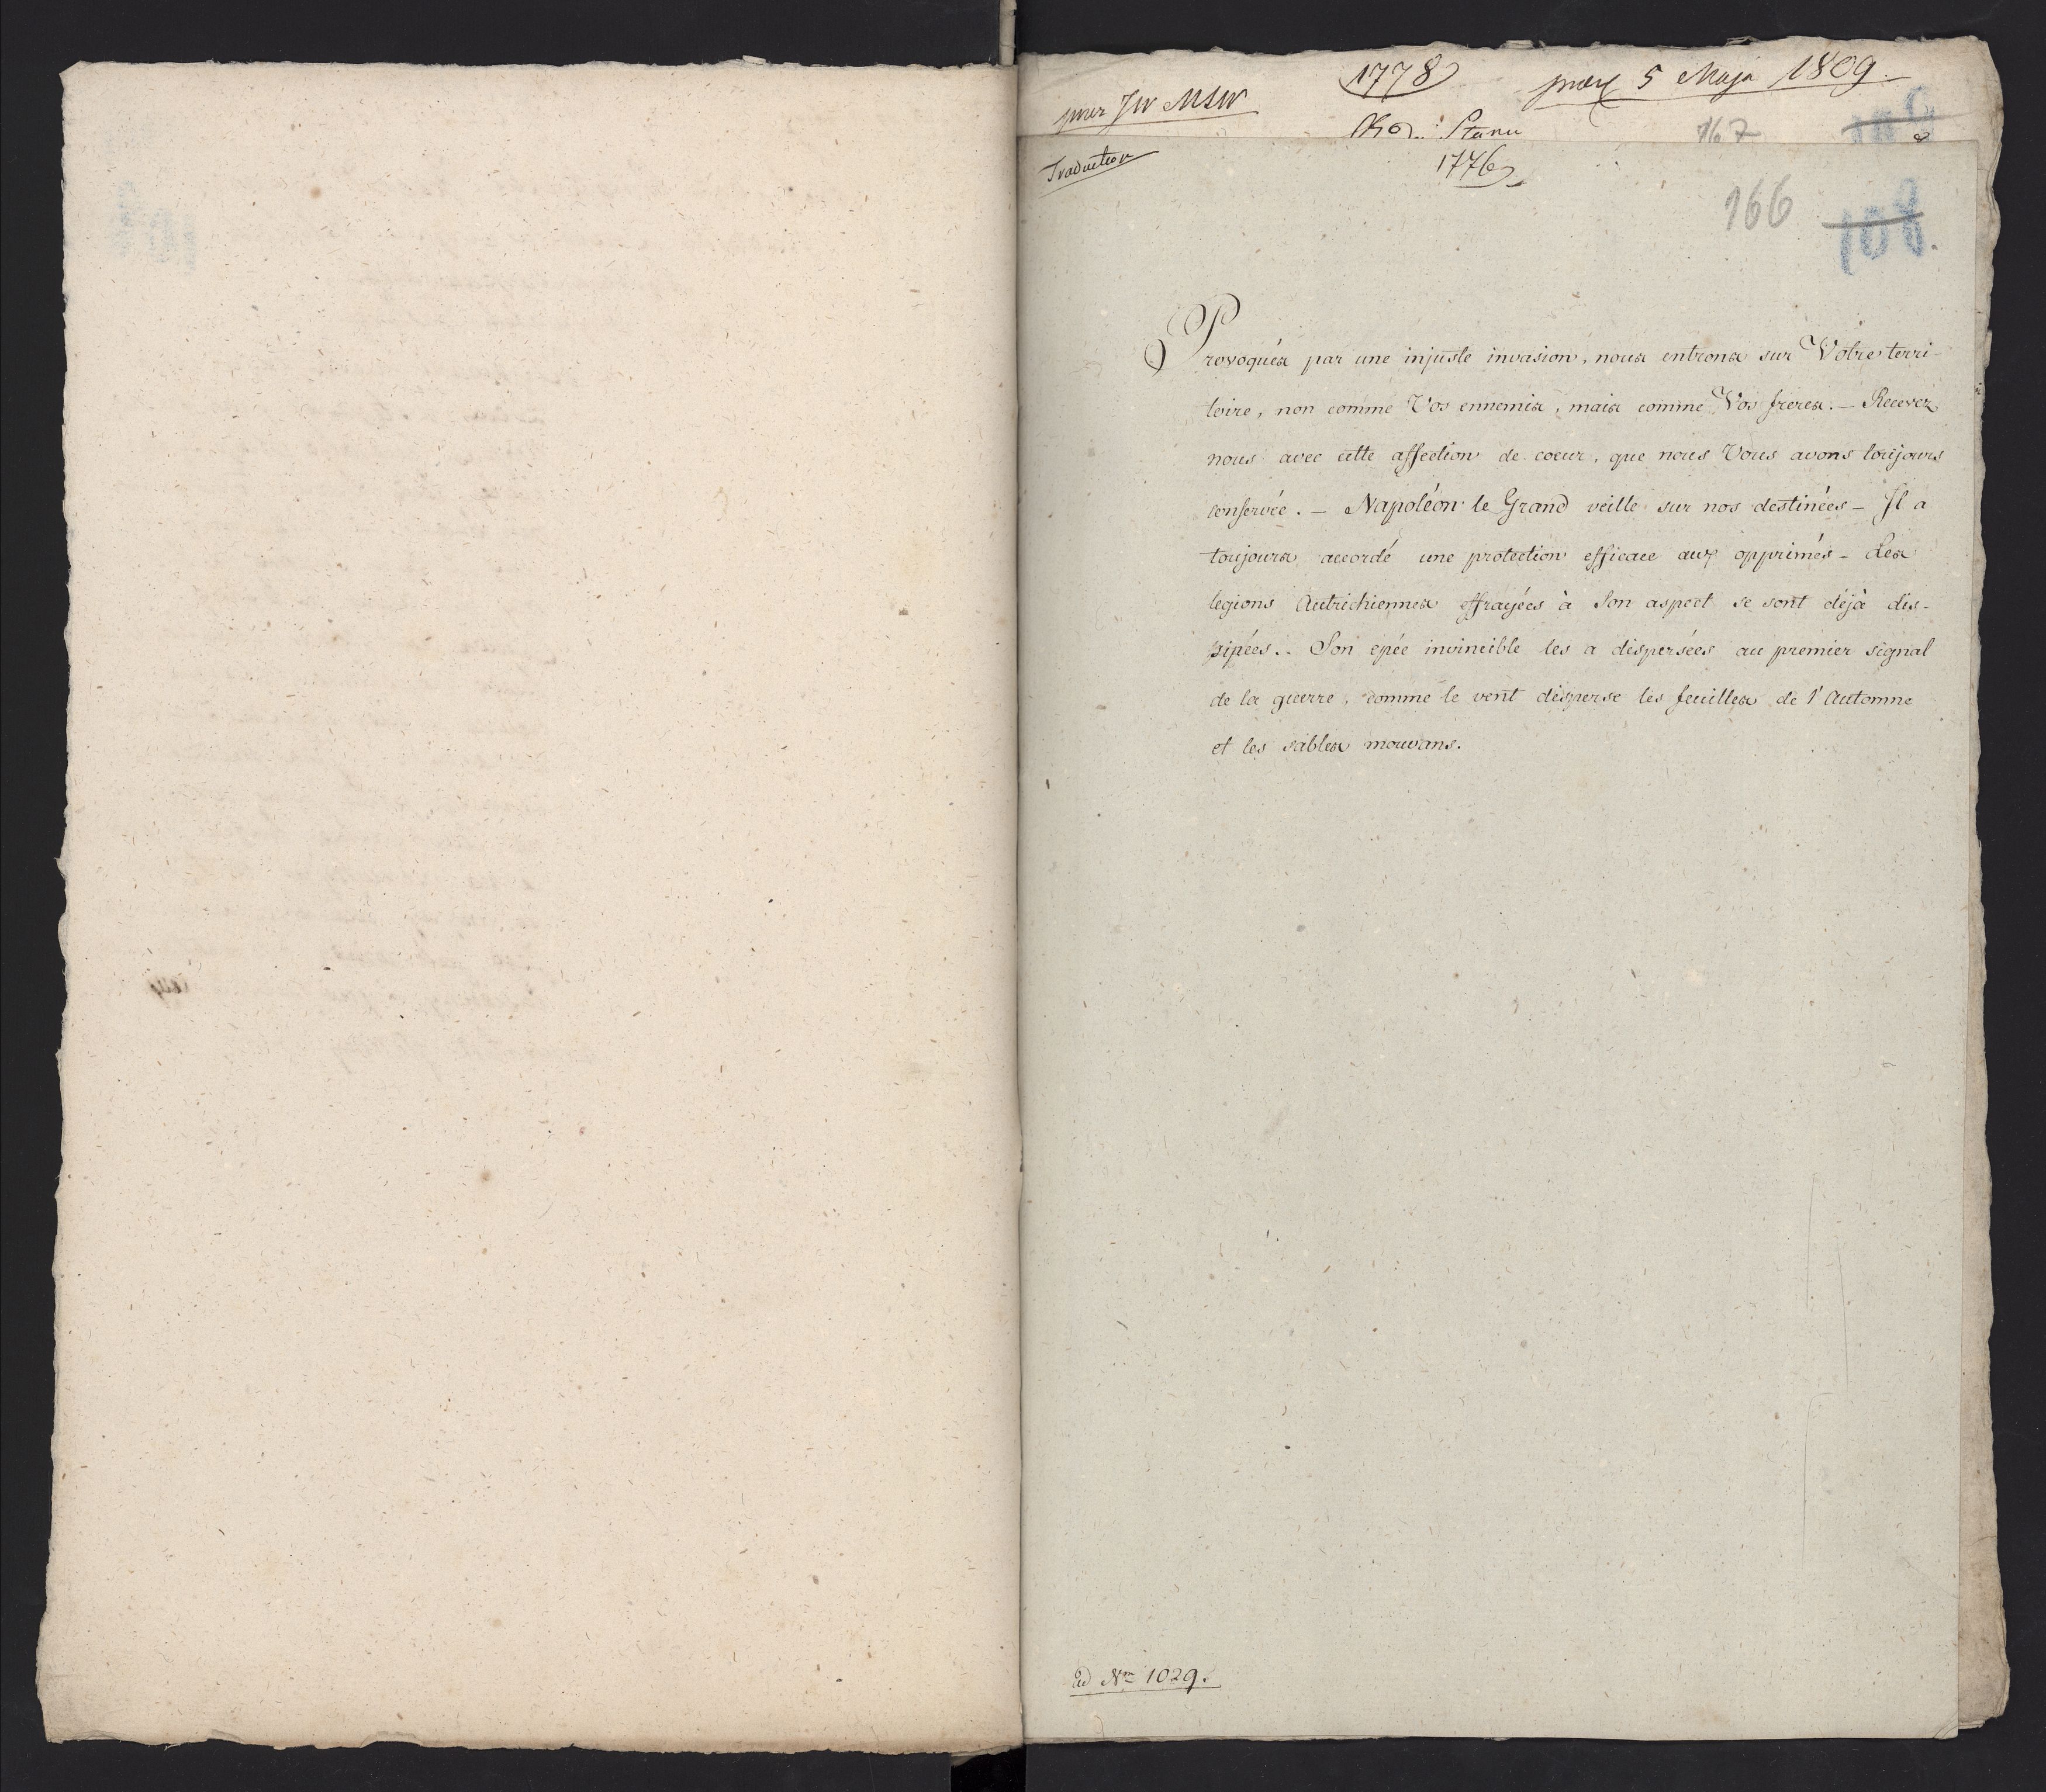 1778
5 Maja 1809.
167
Traduction
1776
166
108.
Provoqués par une injuste invasion, nous entrons sur Votre terri-
toire, non comme Vos ennemis, mais comme Vos freres. — Recevez
nous avec cette affection de coeur, que nous Vous avons toujours
conservée. — Napoléon le Grand veille sur nos destinées — Il a
toujours accordé une protection efficace aux opprimés — Les
legions Autrichiennes effrayées à Son aspect se sont déjà dis-
sipées.. Son epée invincible les a dispersées au premier signal
de la guerre, comme le vent disperse les feuilles de l'Automne
et les sables mouvans.
ad Nm 1029.